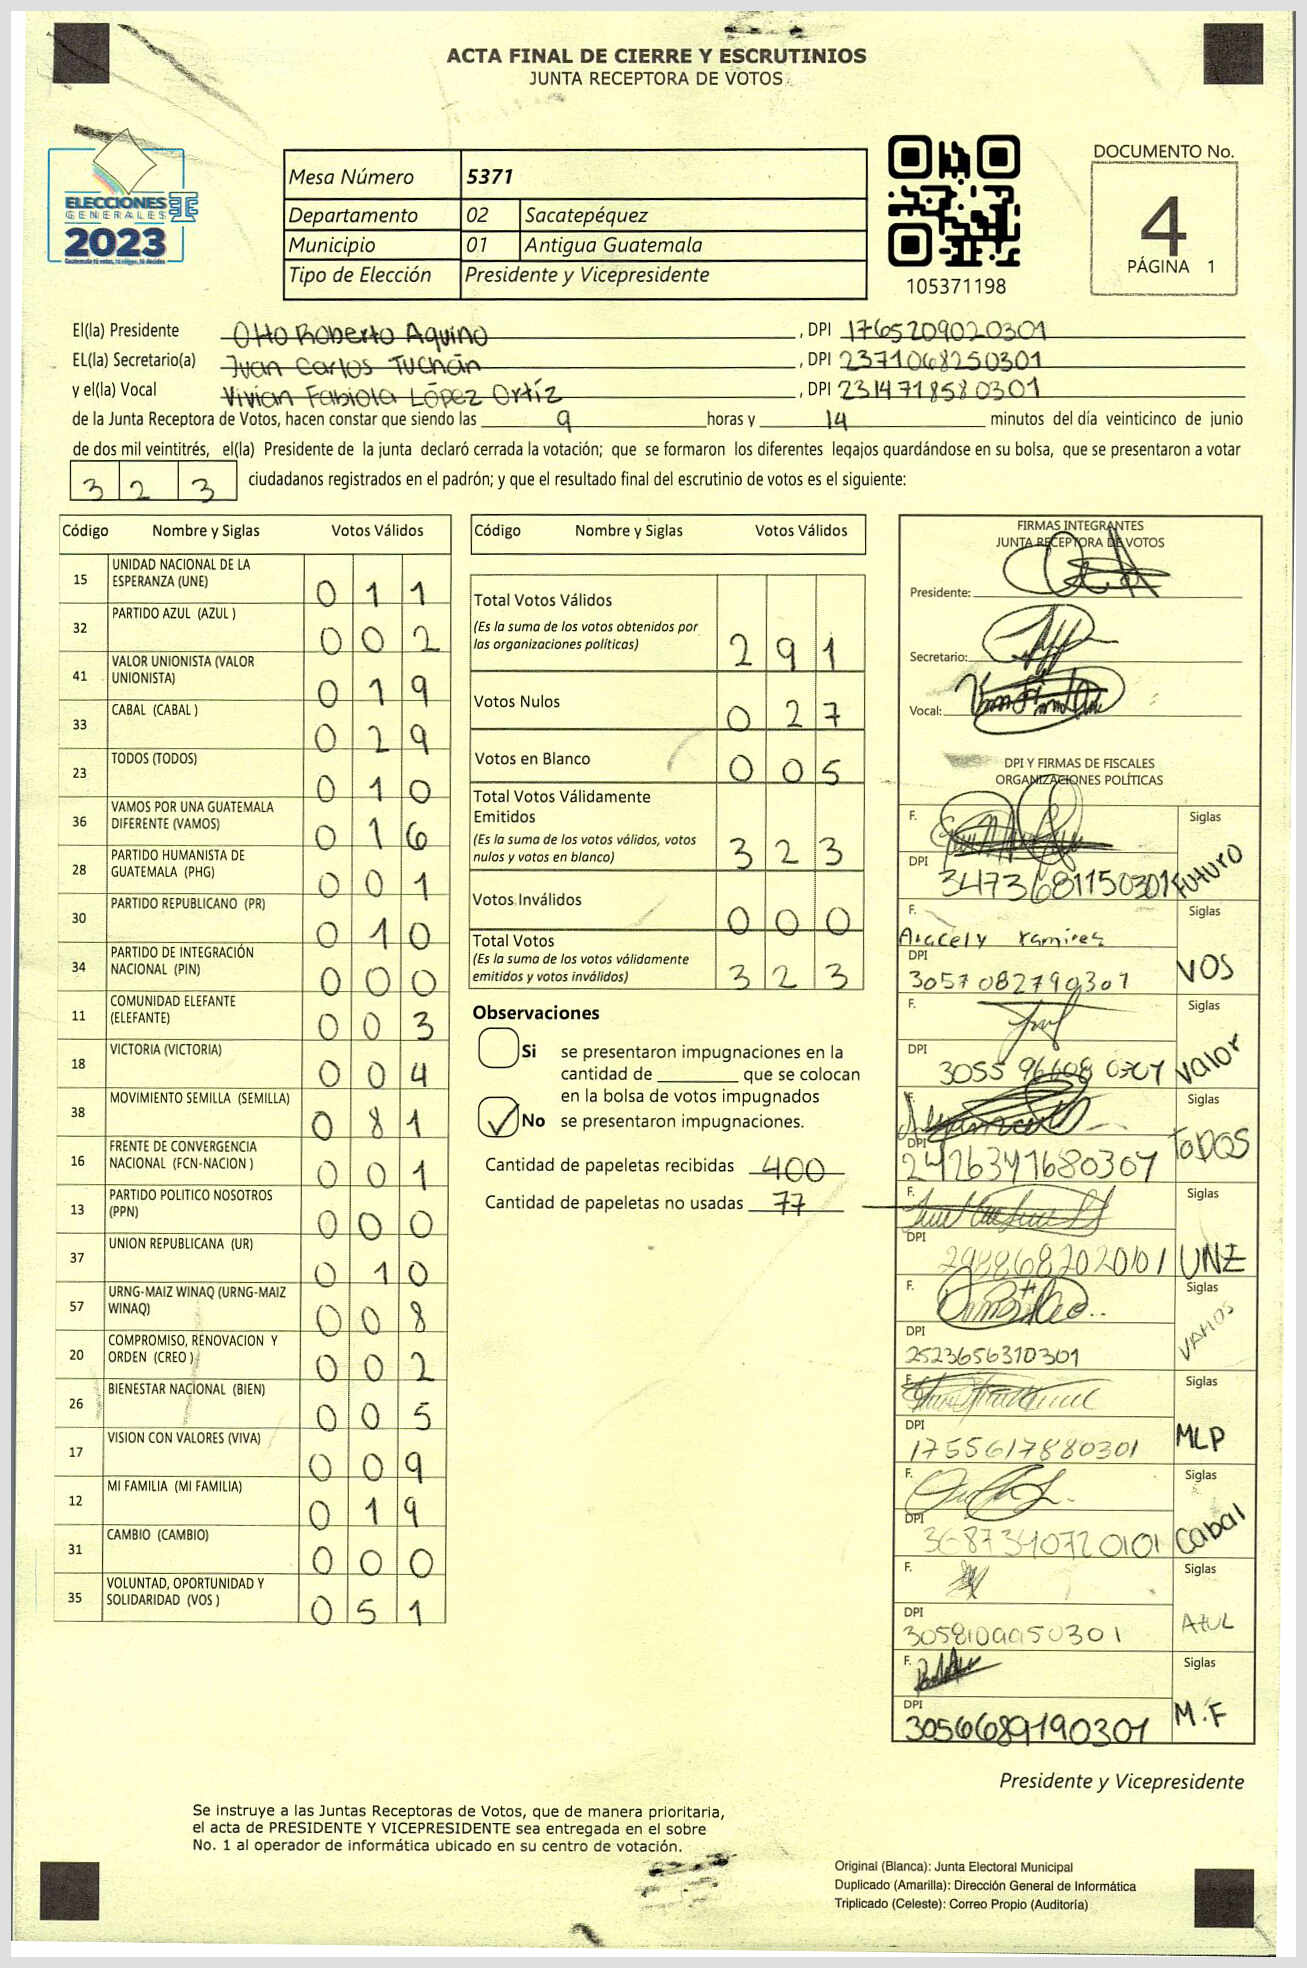 ACTA FINAL DE CIERRE Y ESCRUTINIOS
JUNTA RECEPTORA DE VOTOS
ELECCIONES
GENERALES
2023
Mesa Número 5371
Departamento 02 Sacatepéquez
Municipio 01 Antigua Guatemala
Tipo de Elección Presidente y Vicepresidente
105371198
DOCUMENTO No.
4
PÁGINA 1
El(la) Presidente Otto Roberto Aquino, DPI 1765209020301
EL(la) Secretario(a) Juan Carlos Tuchán, DPI 2371068250301
y el(la) Vocal Vivian Fabiola López Ortíz, DPI 2314718580301
de la Junta Receptora de Votos, hacen constar que siendo las 9 horas y 14 minutos del día veinticinco de junio
de dos mil veintitrés, el(la) Presidente de la junta declaró cerrada la votación; que se formaron los diferentes legajos guardándose en su bolsa, que se presentaron a votar
323 ciudadanos registrados en el padrón; y que el resultado final del escrutinio de votos es el siguiente:
Código Nombre y Siglas Votos Válidos
15 UNIDAD NACIONAL DE LA ESPERANZA (UNE) 011
32 PARTIDO AZUL (AZUL ) 002
41 VALOR UNIONISTA (VALOR UNIONISTA) 019
33 CABAL (CABAL ) 029
23 TODOS (TODOS) 010
36 VAMOS POR UNA GUATEMALA DIFERENTE (VAMOS) 016
28 PARTIDO HUMANISTA DE GUATEMALA (PHG) 001
30 PARTIDO REPUBLICANO (PR) 010
34 PARTIDO DE INTEGRACIÓN NACIONAL (PIN) 000
11 COMUNIDAD ELEFANTE (ELEFANTE) 003
18 VICTORIA (VICTORIA) 004
38 MOVIMIENTO SEMILLA (SEMILLA) 081
16 FRENTE DE CONVERGENCIA NACIONAL (FCN-NACION ) 001
13 PARTIDO POLITICO NOSOTROS (PPN) 000
37 UNION REPUBLICANA (UR) 010
57 URNG-MAIZ WINAQ (URNG-MAIZ WINAQ) 008
20 COMPROMISO, RENOVACION Y ORDEN (CREO ) 002
26 BIENESTAR NACIONAL (BIEN) 005
17 VISION CON VALORES (VIVA) 009
12 MI FAMILIA (MI FAMILIA) 019
31 CAMBIO (CAMBIO) 000
35 VOLUNTAD, OPORTUNIDAD Y SOLIDARIDAD (VOS ) 051
Código Nombre y Siglas Votos Válidos
Total Votos Válidos
(Es la suma de los votos obtenidos por
las organizaciones políticas) 291
Votos Nulos 027
Votos en Blanco 005
Total Votos Válidamente
Emitidos
(Es la suma de los votos válidos, votos
nulos y votos en blanco) 323
Votos Inválidos 000
Total Votos
(Es la suma de los votos válidamente
emitidos y votos inválidos) 323
Observaciones
Si se presentaron impugnaciones en la
cantidad de ________ que se colocan
en la bolsa de votos impugnados
No se presentaron impugnaciones.
Cantidad de papeletas recibidas 400
Cantidad de papeletas no usadas 77
FIRMAS INTEGRANTES
JUNTA RECEPTORA DE VOTOS
Presidente:
Secretario:
Vocal:
DPI Y FIRMAS DE FISCALES
ORGANIZACIONES POLÍTICAS
F. Siglas
DPI 3473681150301 FUTURO
F. Aracely Ramires Siglas
DPI 3057082790301 VOS
F. Siglas
DPI 3055 Valor
F. Siglas
DPI 2426347680307 TODOS
F. Siglas
DPI UNE
F. Siglas
DPI 2523656310301 VAMOS
F. Siglas
DPI 1755617880301 MLP
F. Siglas
DPI 3687340720101 Cabal
F. Siglas
DPI AZUL
F. Siglas
DPI 3056689190301 M.F
Presidente y Vicepresidente
Se instruye a las Juntas Receptoras de Votos, que de manera prioritaria,
el acta de PRESIDENTE Y VICEPRESIDENTE sea entregada en el sobre
No. 1 al operador de informática ubicado en su centro de votación.
Original (Blanca): Junta Electoral Municipal
Duplicado (Amarilla): Dirección General de Informática
Triplicado (Celeste): Correo Propio (Auditoría)